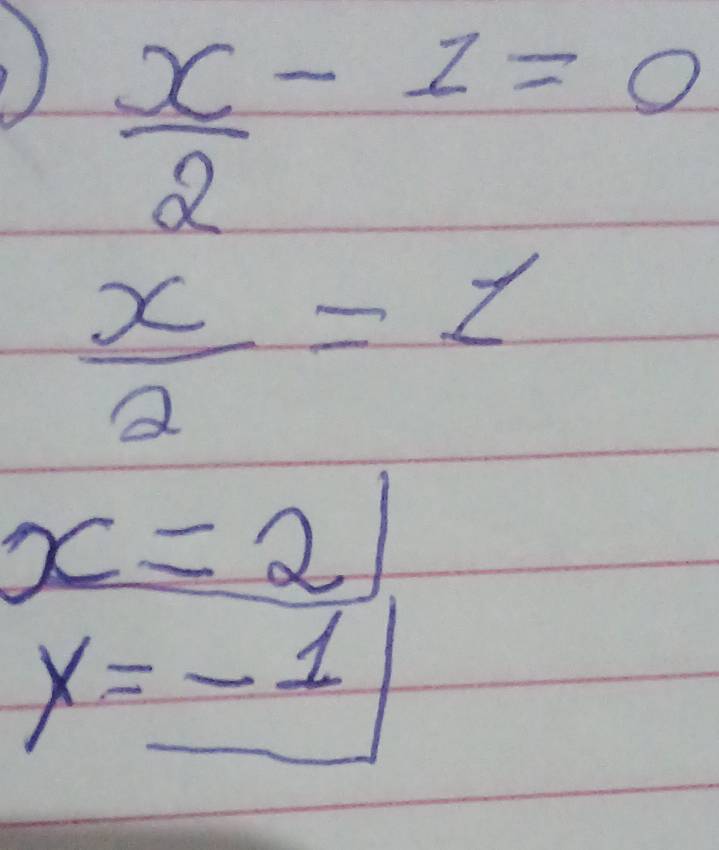 ) x/2 - 1 = 0
x/2 = 1
x = 2
y = - 1